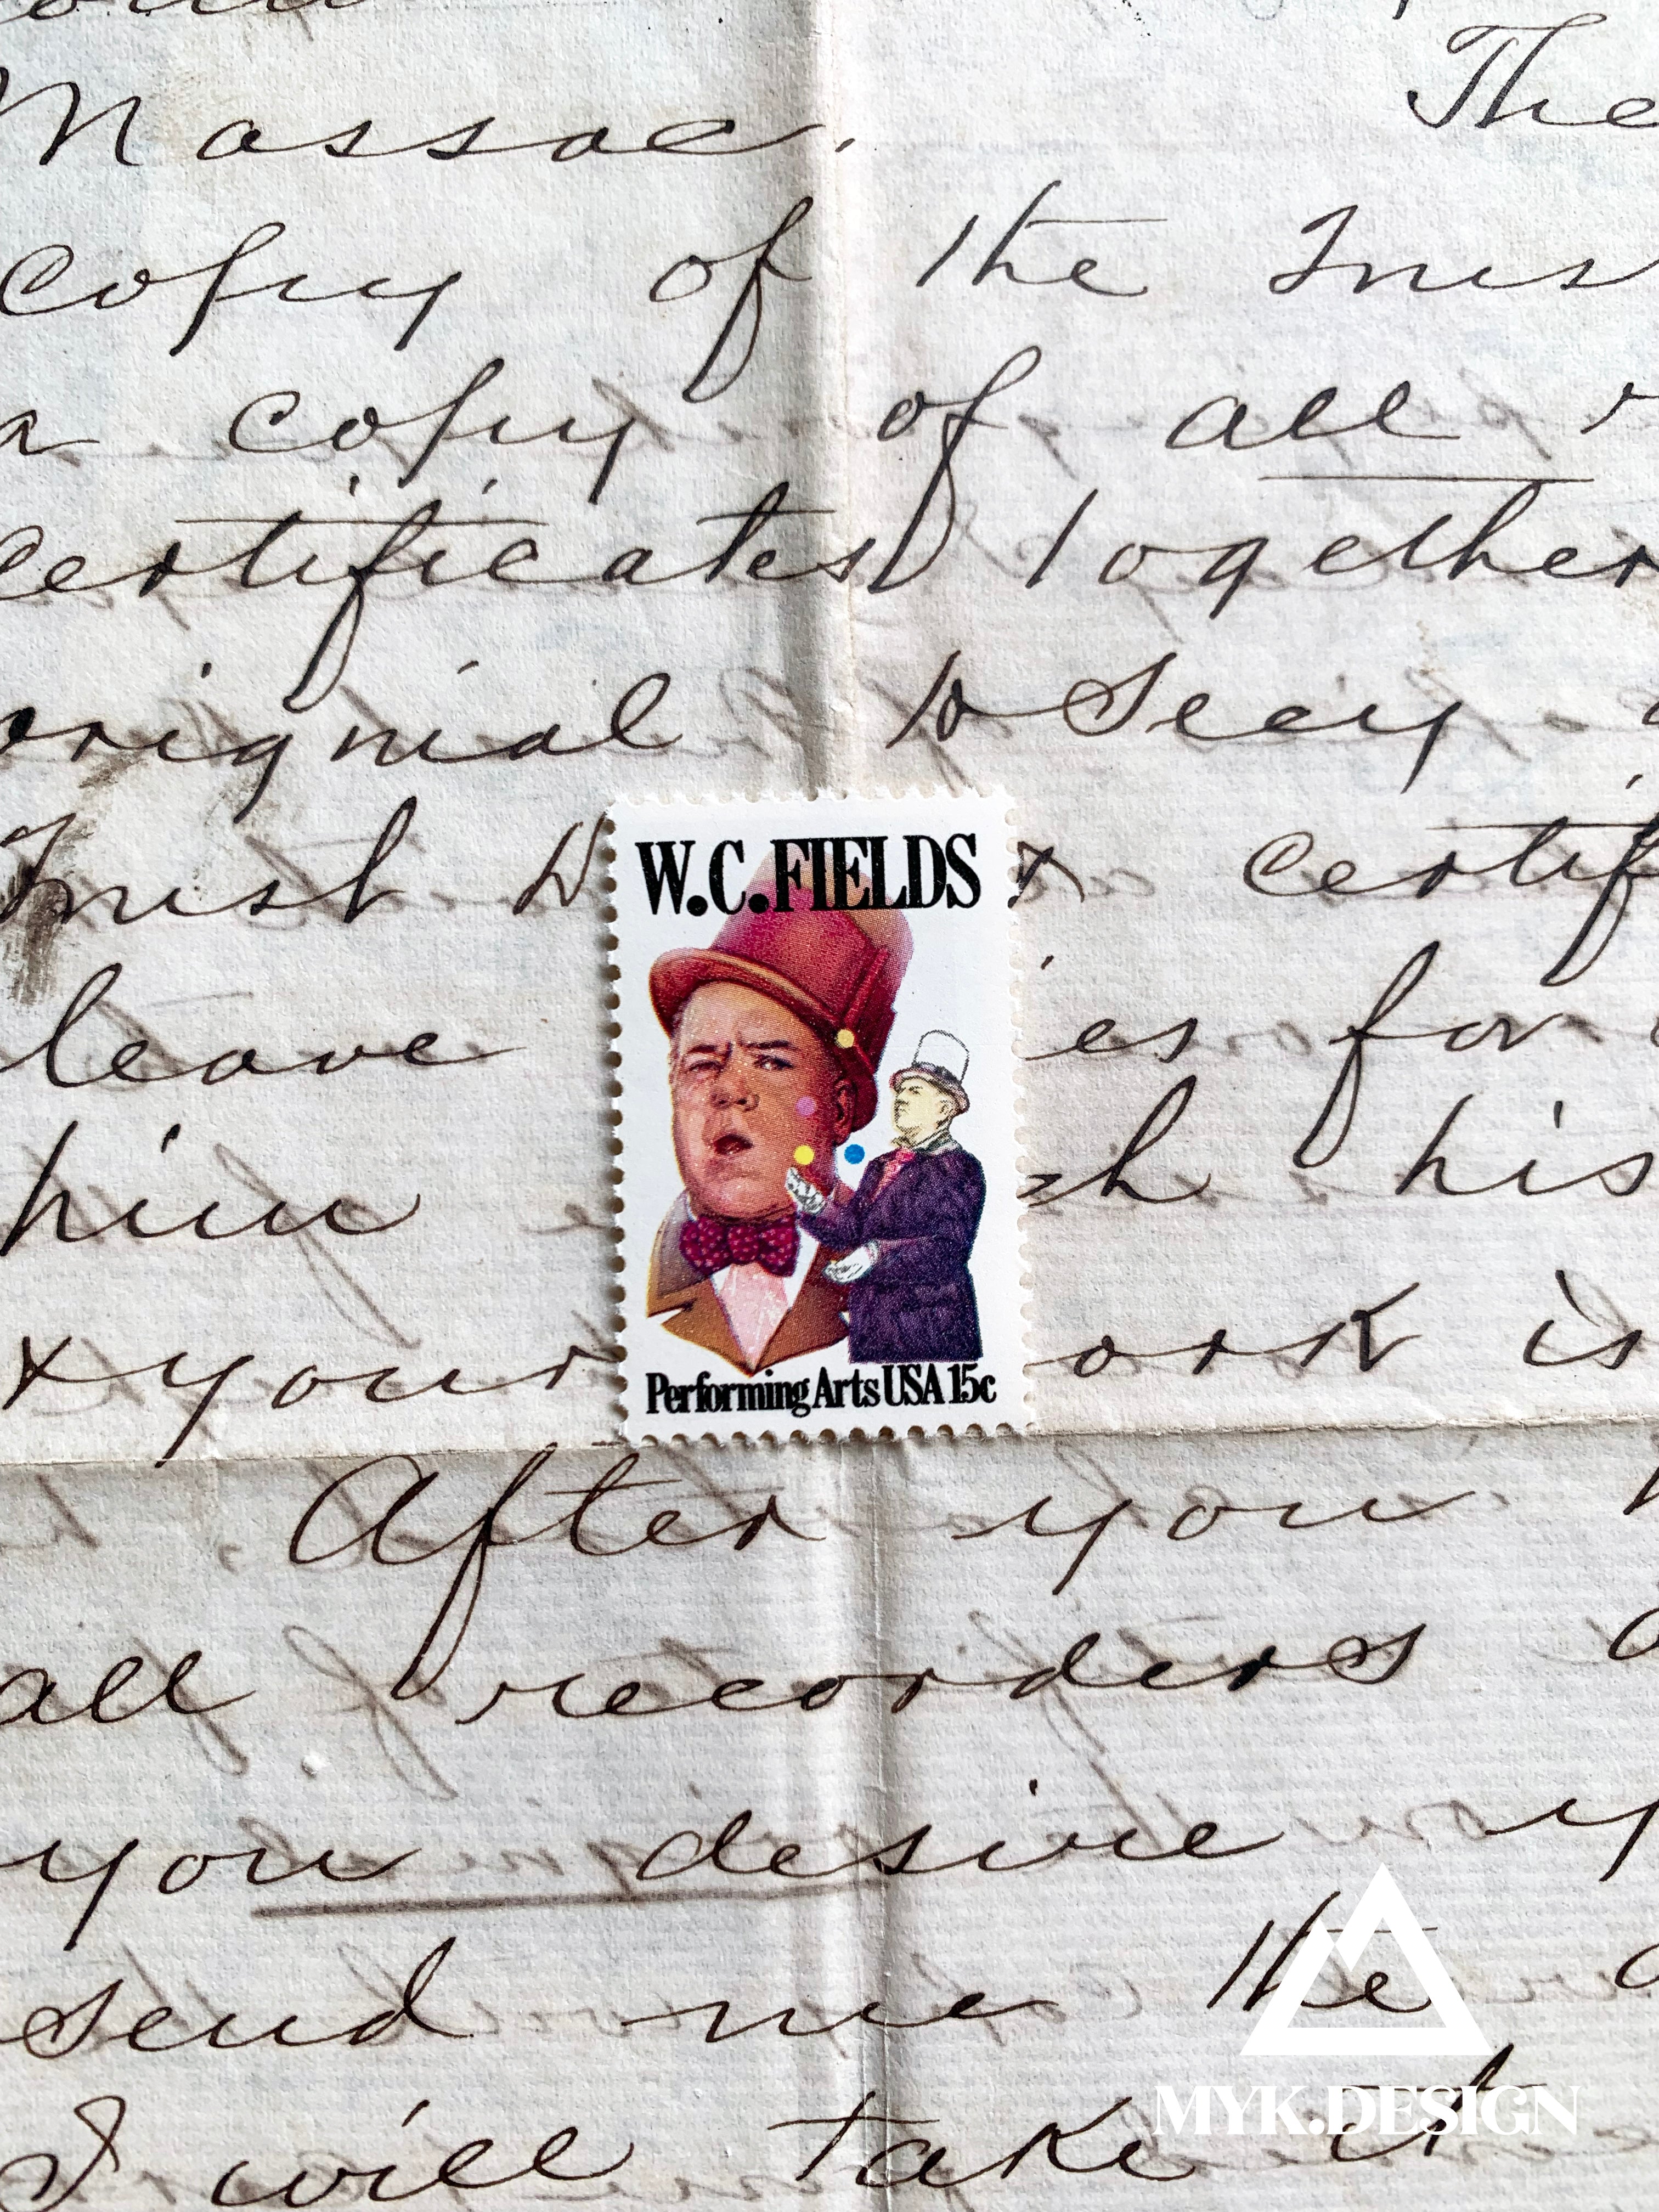 Massac. The
copy of the Inis
a copy of all
certificates together
orignial to seey
Inist certif
leave es for
him h his
x your ork is
W.C. FIELDS
Performing Arts USA 15c
After you
all recorders
you desire y
send me the
I will take it
MYK.DESIGN